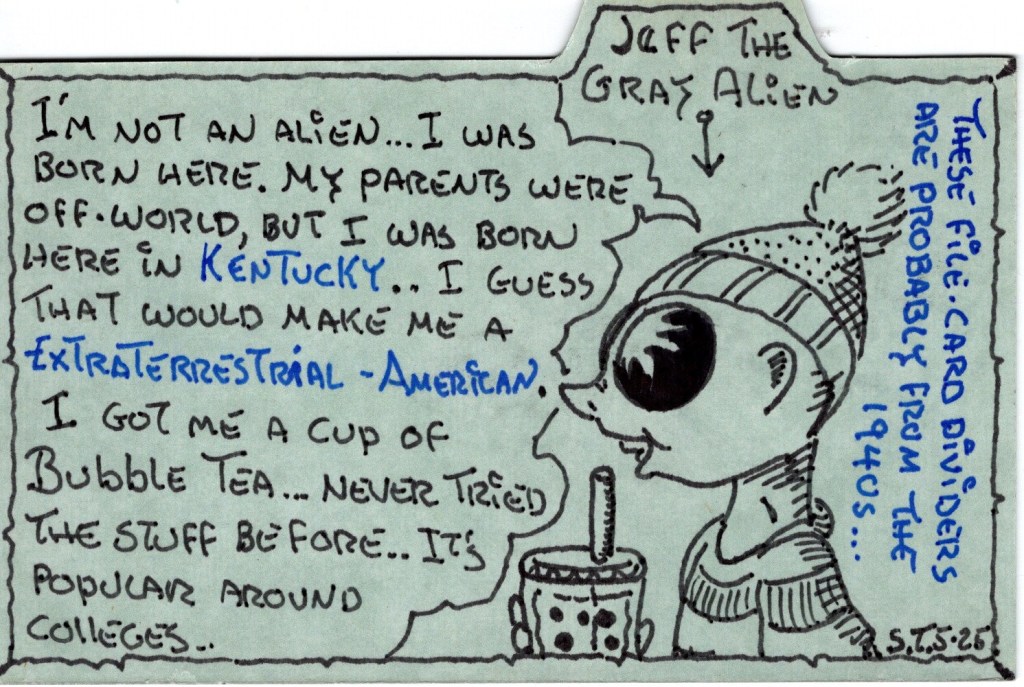 JEFF THE
GRAY ALiEN
I'M NOT AN ALiEN...I WAS
BORN HERE. MY PARENTS WERE
OFF-WORLD, BUT I WAS BORN
HERE iN KENTUCKY.. I GUESS
THAT WOULD MAKE ME A
EXTRATERRESTRiAL-AMERiCAN.
I GOT ME A CUP OF
BUBBLE TEA... NEVER TRiED
THE STUFF BEFORE.. IT'S
POPULAR AROUND
COLLEGES...
THESE FiLE-CARD DiViDERS
ARE PROBABLY FROM THE
1940S...
S.T.S-25